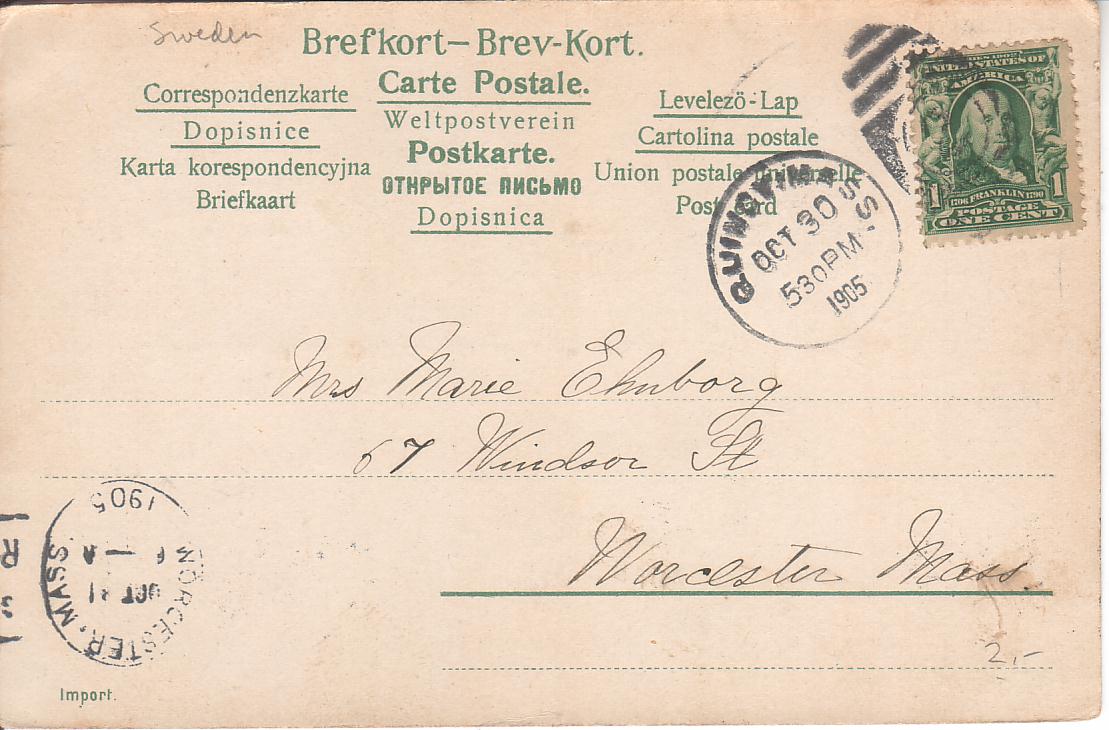 Sweden
Brefkort–Brev-Kort.
Correspondenzkarte
Dopisnice
Karta korespondencyjna
Briefkaart
Carte Postale.
Weltpostverein
Postkarte.
ОТКРЫТОЕ ПИСЬМО
Dopisnica
Levelezö-Lap
Cartolina postale
Union postale universelle
Post card
UNITED STATES OF
AMERICA
1706 FRANKLIN 1790
1 1
POSTAGE
ONE CENT
QUINCY, MASS.
OCT 30
530 PM
1905
Mrs Marie Ehnborg
67 Windsor St
Worcester Mass.
WORCESTER, MASS.
OCT 31
1905
R
3
2,-
Import.